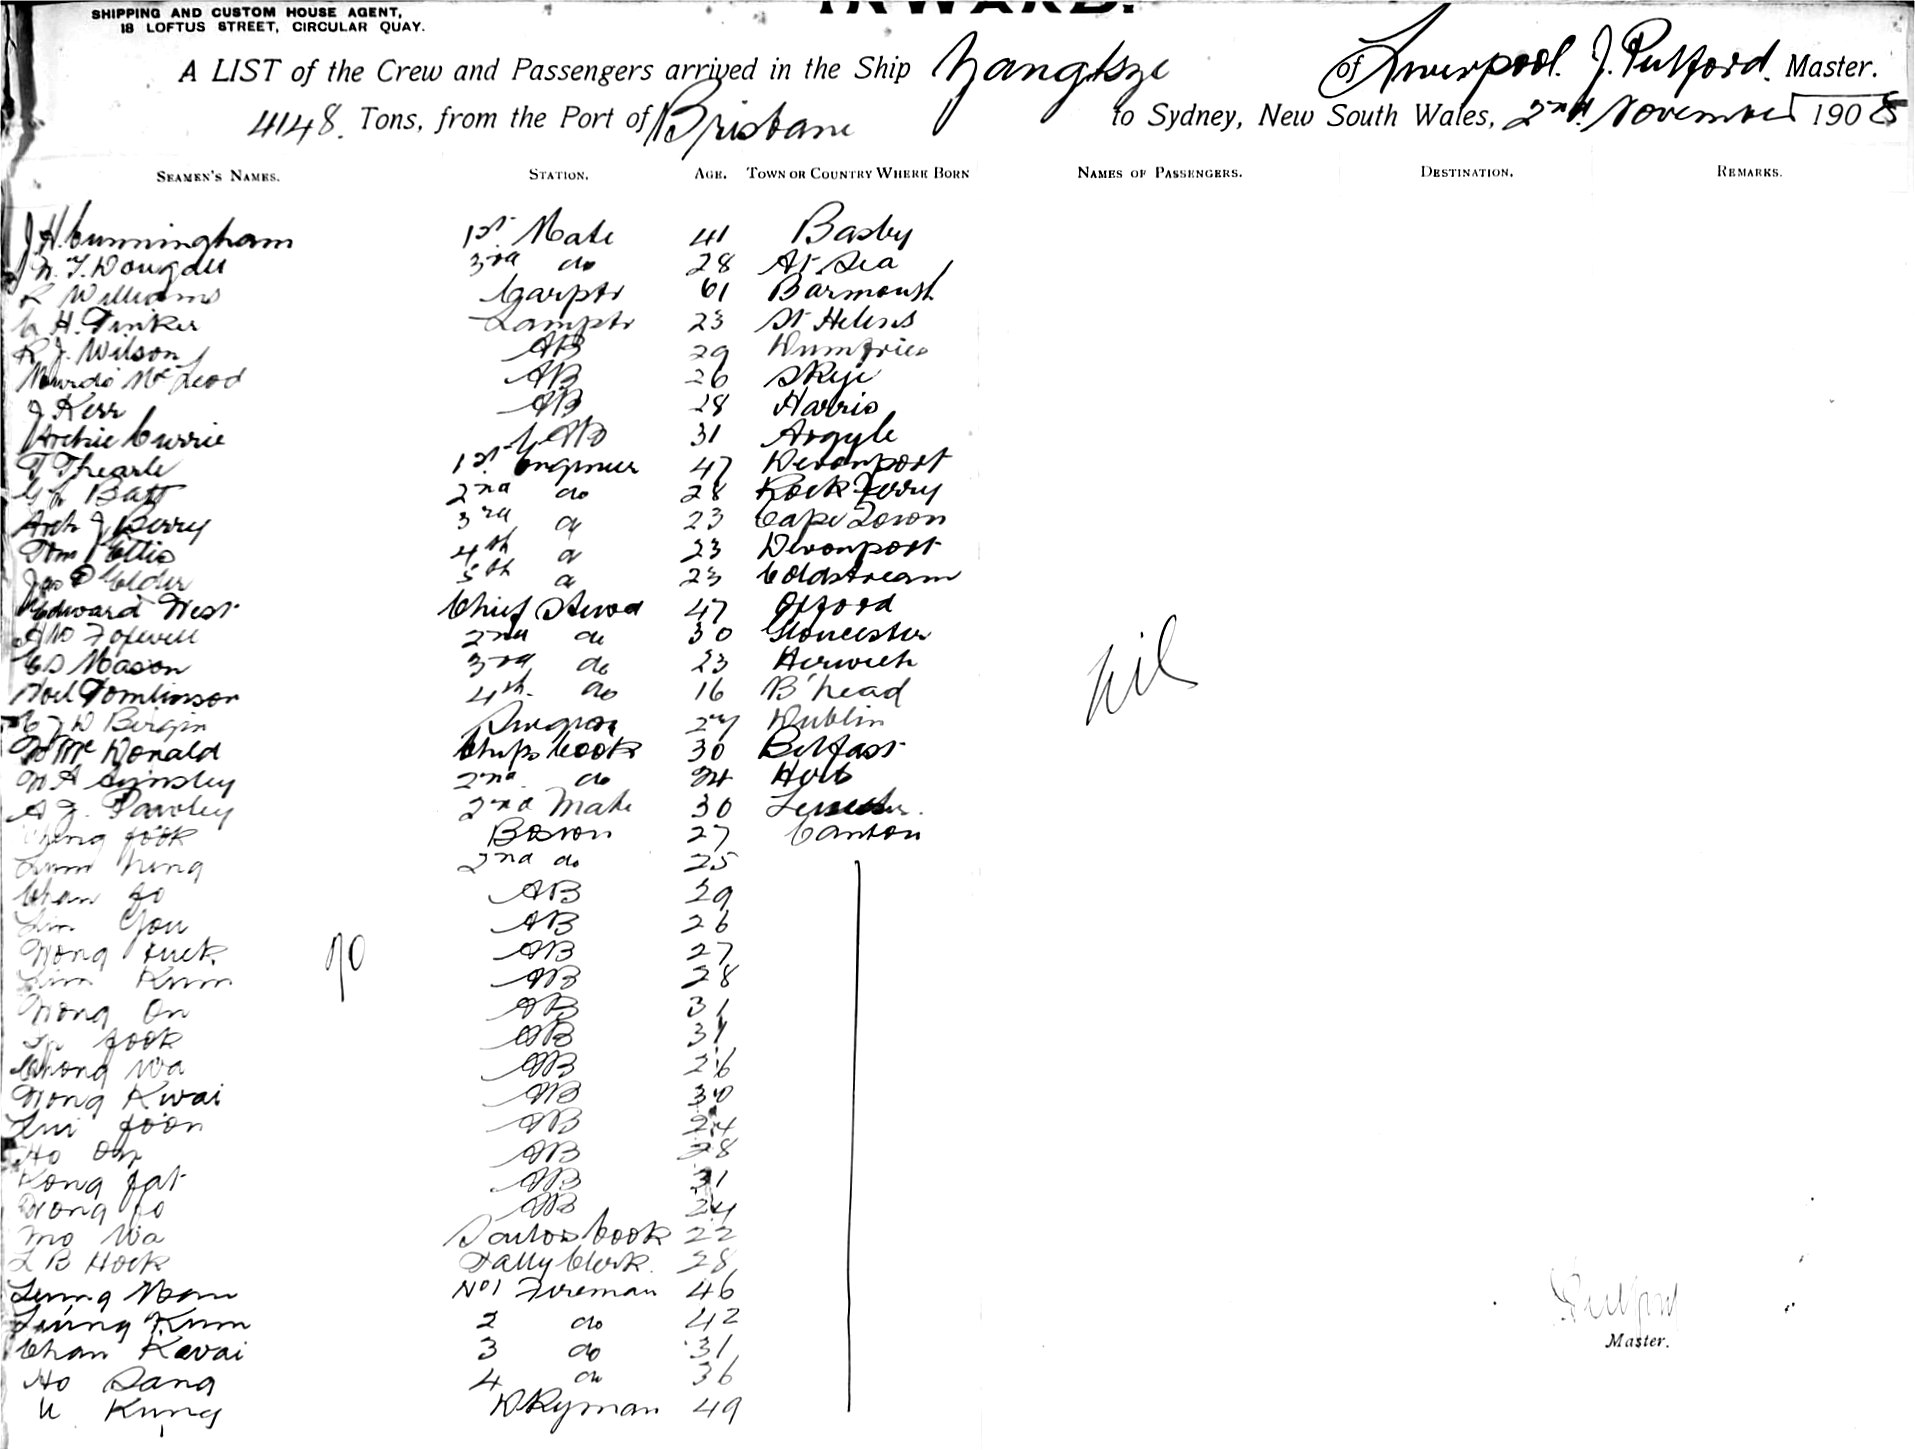 INWARD.
SHIPPING AND CUSTOM HOUSE AGENT,
18 LOFTUS STREET, CIRCULAR QUAY.
A LIST of the Crew and Passengers arrived in the Ship Yangtsze of Liverpool. J. Pulford. Master.
4148. Tons, from the Port of Brisbane to Sydney, New South Wales, 2nd November 1908
SEAMEN'S NAMES. STATION. AGE. TOWN OR COUNTRY WHERE BORN NAMES OF PASSENGERS. DESTINATION. REMARKS.
J H. Cunningham 1st Mate 41 Busby
3rd do 28 At Sea
R Williams Carptr 61 Barmouth
C H. Tinker Lamptr 23 St Helens
R J. Wilson AB 29 Dumfries
Murdo McLeod AB 26 Skye
J Kerr AB 28 Harris
Archie Currie AB 31 Argyle
T Thearle 1st Engineer 47 Devonport
Batt 2nd do 28 Rock Ferry
Arch J Berry 3rd do 23 Cape Town
Tom Ellis 4th do 23 Devonport
Jas P Elder 5th do 23 Coldstream
Edward West Chief Stewd 47 Oxford
2nd do 30 Gloucester
C S Mason 3rd do 23 Harwich
Noel Tomlinson 4th do 16 B'head
D Bergin Surgeon 27 Dublin
McDonald Ships Cook 30 Belfast
2nd do 24
A J. Pawley 2nd Mate 30
Cheng Fook Boson 27 Canton
Lum Ning 2nd do 25
Chan Fo AB 29
Lim You AB 26
Wong Luck AB 27
Lim Kum AB 28
Wong On AB 31
Fook AB 31
Chong Wa AB 26
Wong Kwai AB 30
Lui Foon AB 24
Ho On AB 28
Kong Fat AB 31
Wong Fo AB 24
Mo Wa Sailors Cook 22
L B Hock Tally Clerk. 28
Leung Mow No 1 Fireman 46
Leung Kum 2 do 42
Chan Kwai 3 do 31
Ho Sang 4 do 36
U Kung Dkyman 49
Nil
70
Pulford
Master.